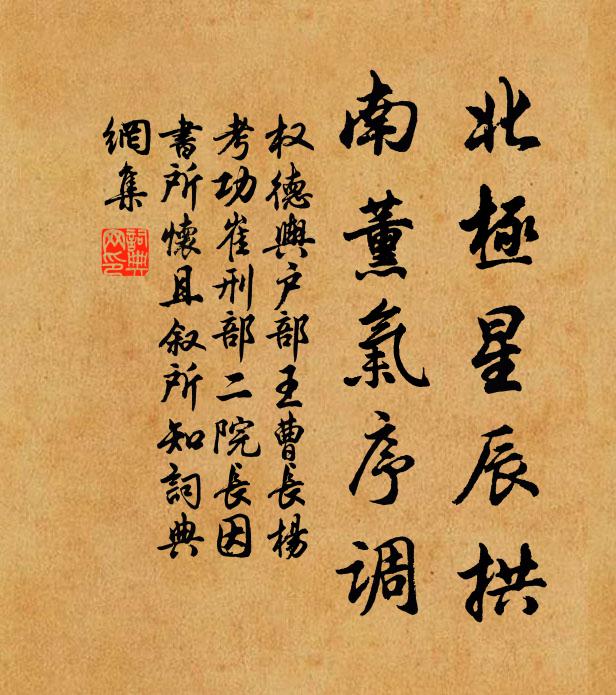 北極星辰拱
南薰氣序调
权德輿户部王曹長楊
考功崔刑部二院長因
書所懷且叙所知詞典
網集
詞典
网印